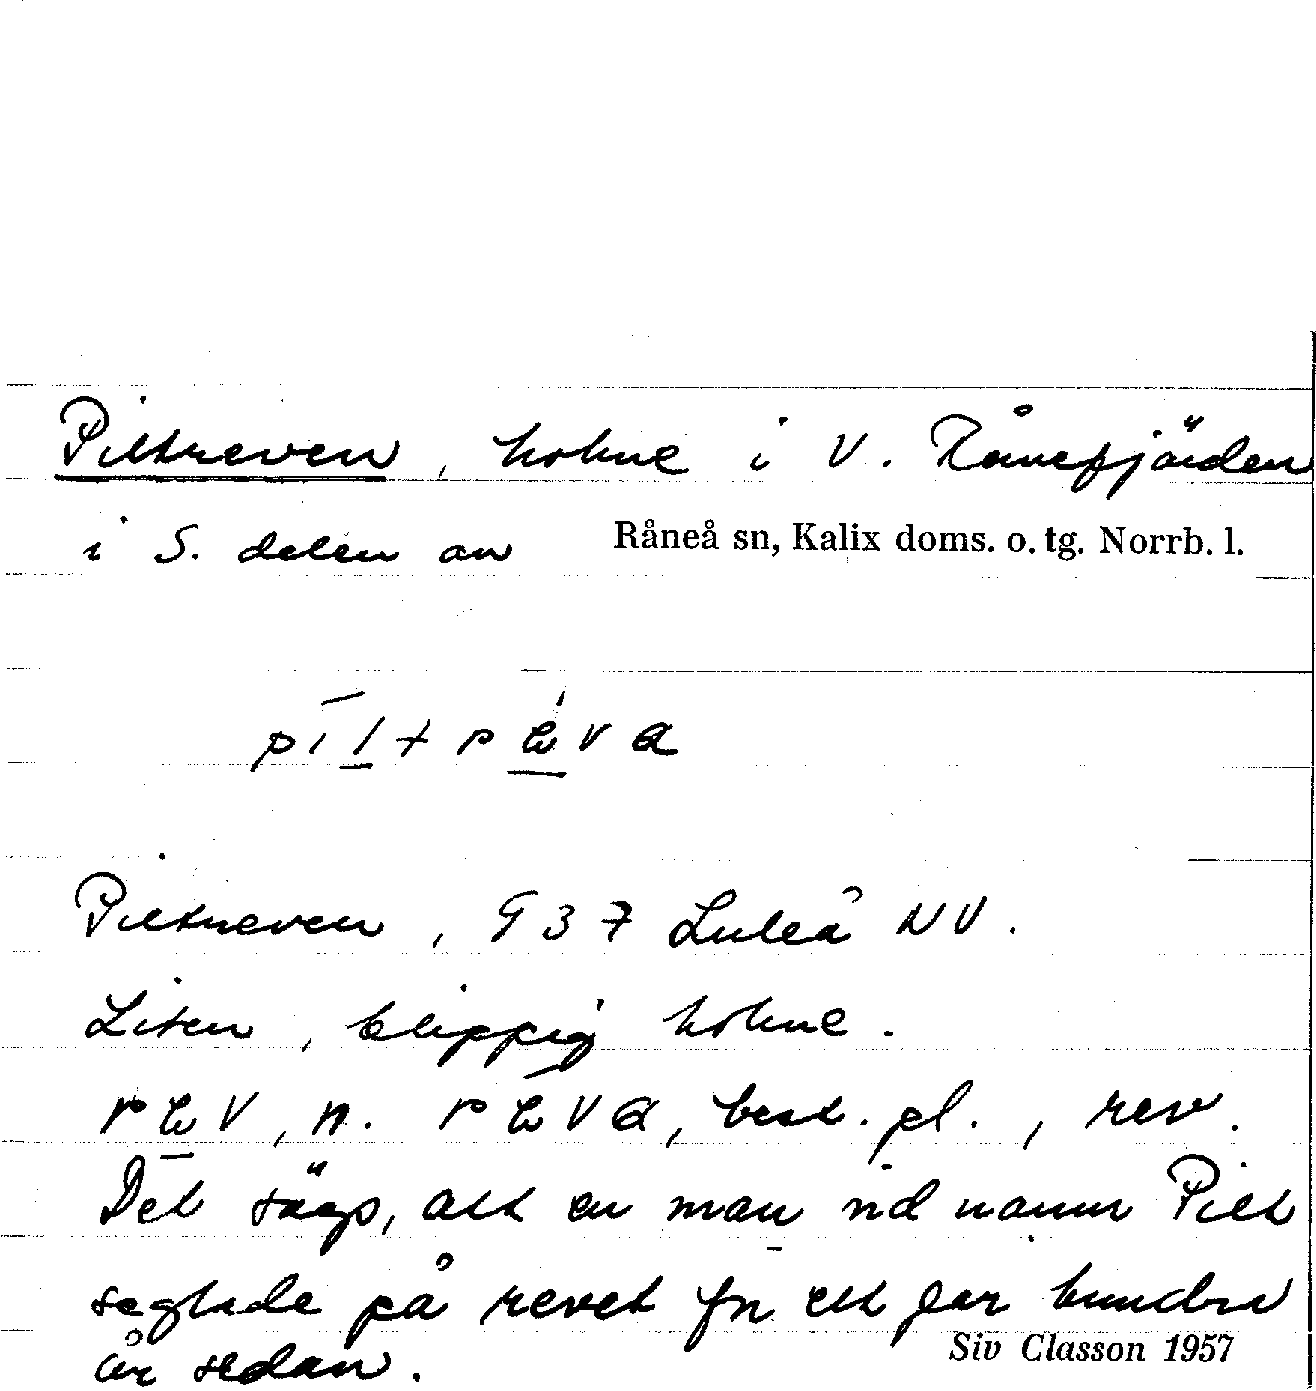 Piltreven, holme i V. Rånefjärden
i S. delen av Råneå sn, Kalix doms. o. tg. Norrb. l.
Piltreven, G 37 Luleå NV.
Liten, klippig holme.
n. best. pl., rev.
Det sägs, att en man vid namn Pilt
seglade på revet för ett par hundra
år sedan.
Siv Classon 1957